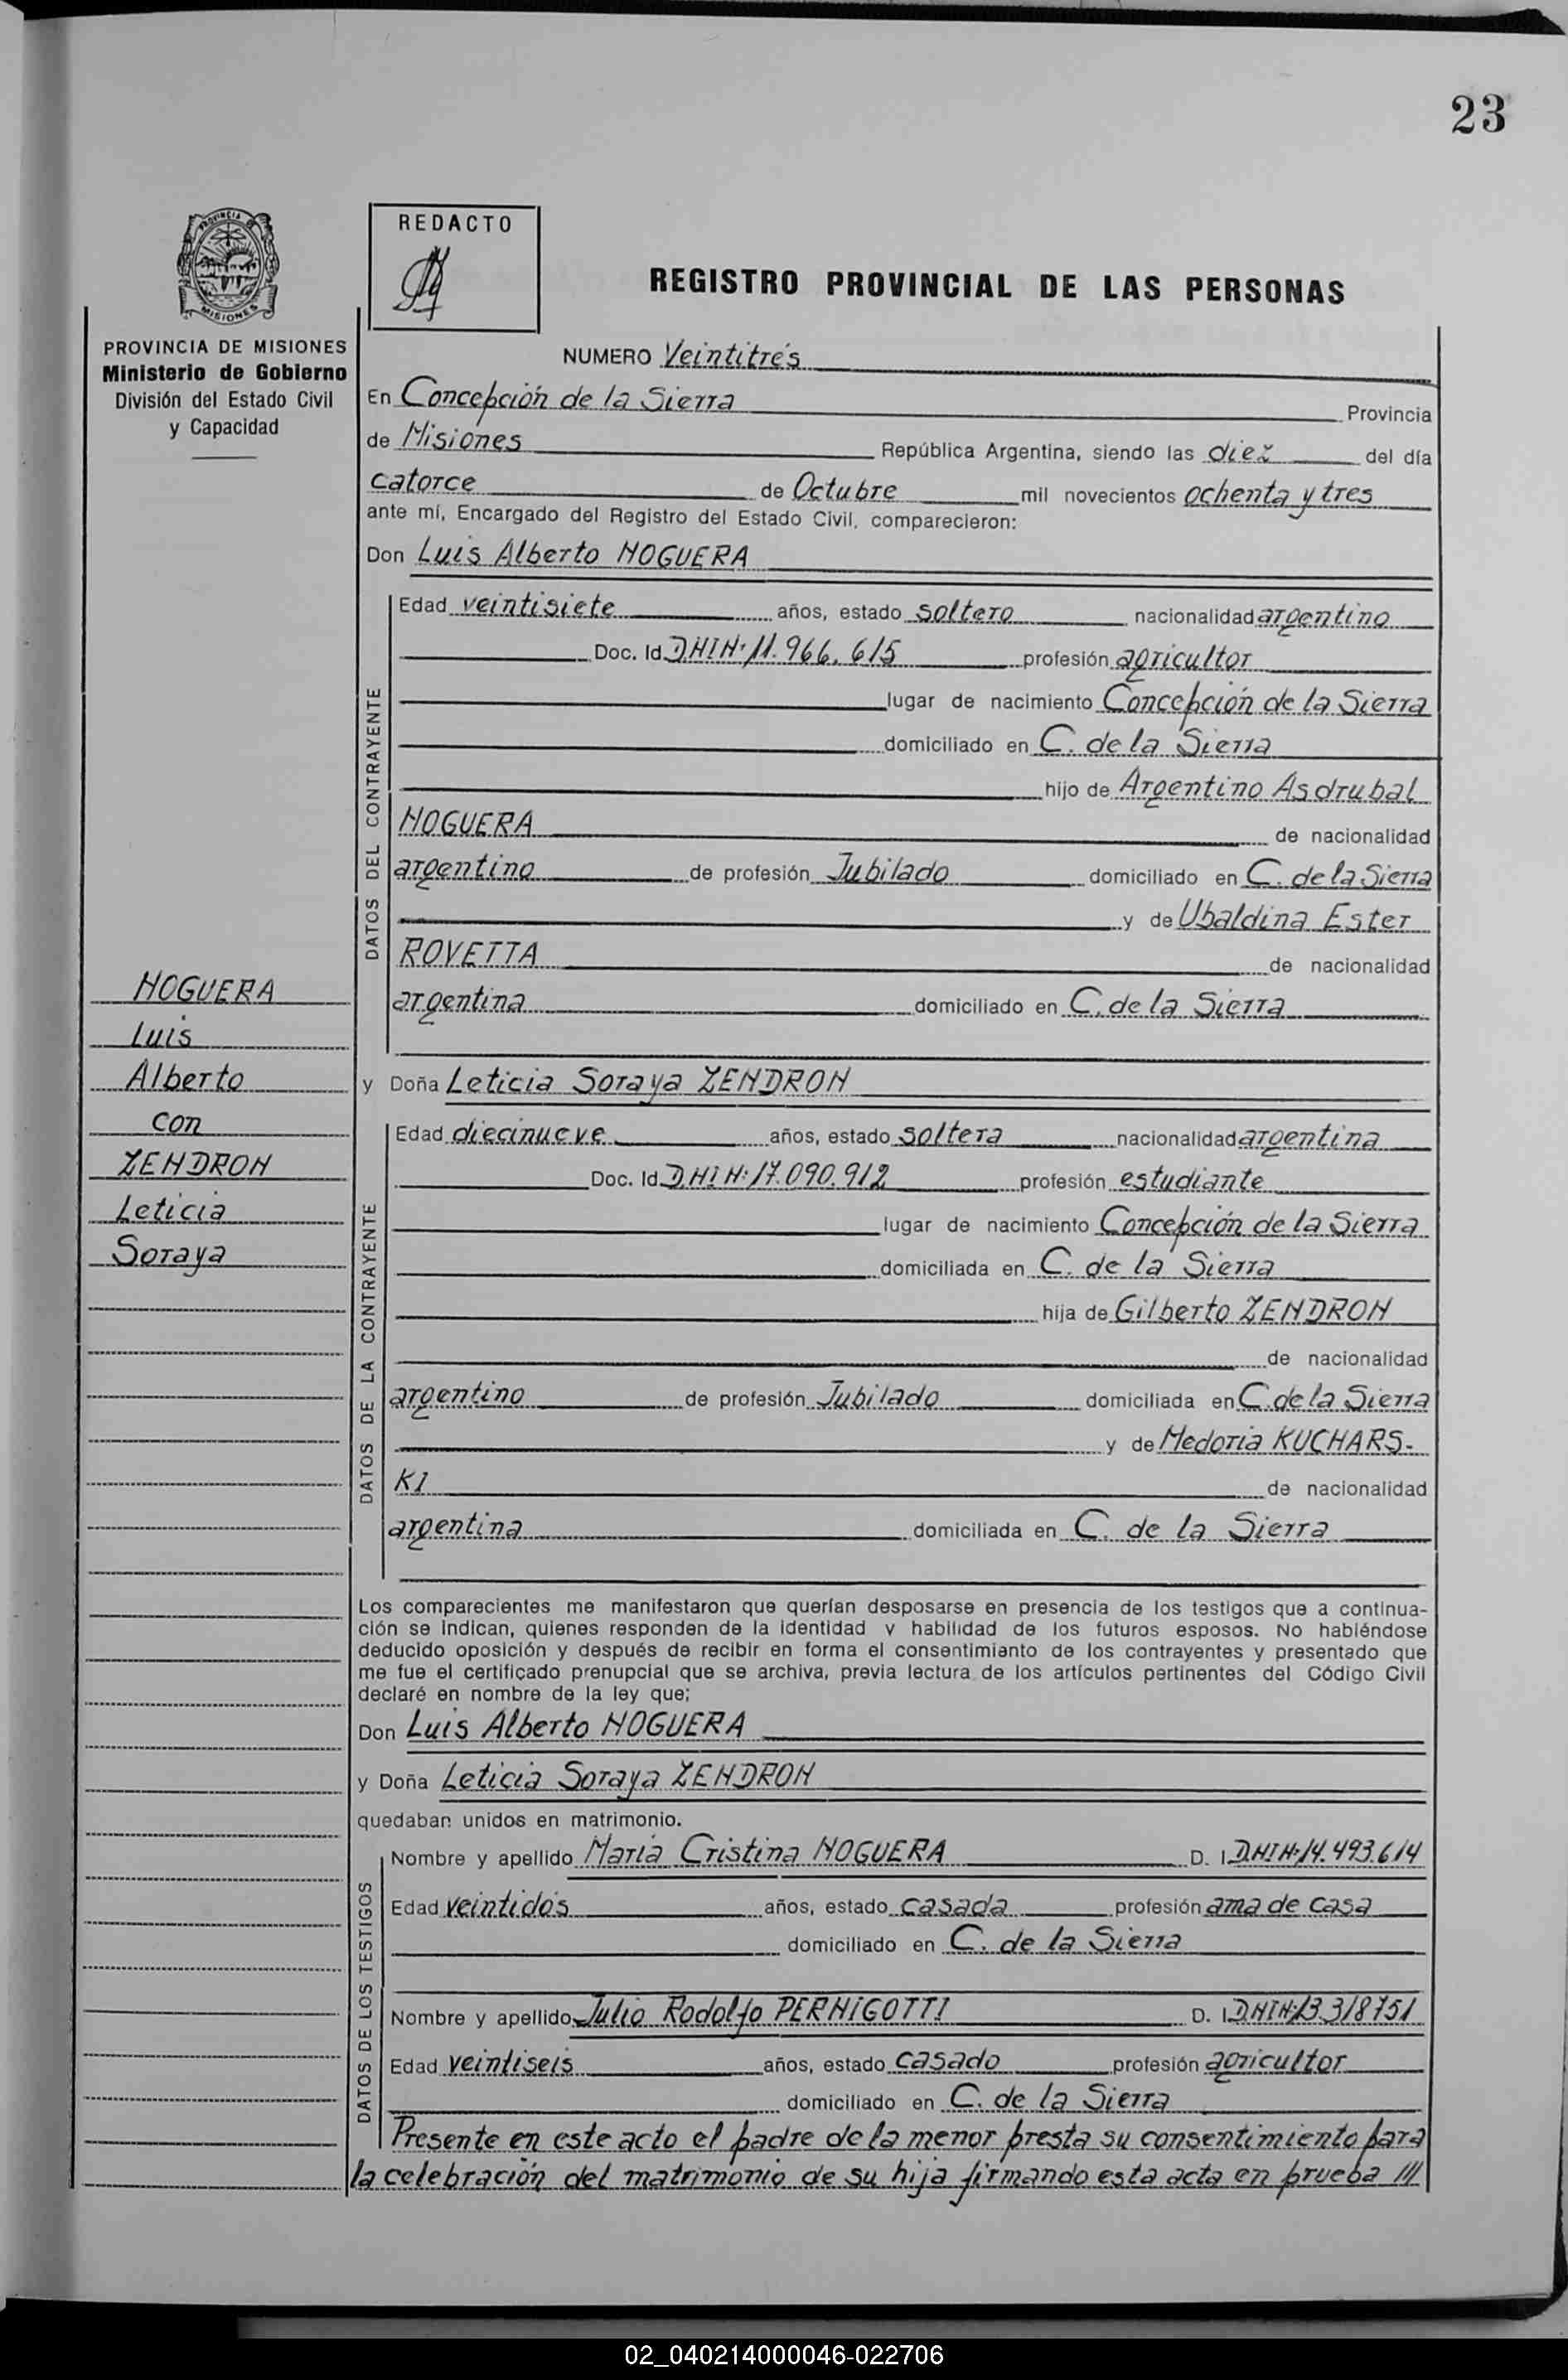 23
PROVINCIA
MISIONES
REDACTO
REGISTRO PROVINCIAL DE LAS PERSONAS
PROVINCIA DE MISIONES
Ministerio de Gobierno
División del Estado Civil
y Capacidad
NOGUERA
Luis
Alberto
con
ZENDRON
Leticia
Soraya
NUMERO Veintitrés
En Concepción de la Sierra Provincia
de Misiones República Argentina, siendo las diez del día
catorce de Octubre mil novecientos ochenta y tres
ante mí, Encargado del Registro del Estado Civil, comparecieron:
Don Luis Alberto NOGUERA
DATOS DEL CONTRAYENTE
Edad veintisiete años, estado soltero nacionalidad argentino
Doc. Id. DNIN: 11.966.615 profesión agricultor
lugar de nacimiento Concepción de la Sierra
domiciliado en C. de la Sierra
hijo de Argentino Asdrubal
NOGUERA de nacionalidad
argentino de profesión Jubilado domiciliado en C. de la Sierra
y de Ubaldina Ester
ROVETTA de nacionalidad
argentina domiciliado en C. de la Sierra
y Doña Leticia Soraya ZENDRON
DATOS DE LA CONTRAYENTE
Edad diecinueve años, estado soltera nacionalidad argentina
Doc. Id. DNIN: 17.090.912 profesión estudiante
lugar de nacimiento Concepción de la Sierra
domiciliada en C. de la Sierra
hija de Gilberto ZENDRON
de nacionalidad
argentino de profesión Jubilado domiciliada en C. de la Sierra
y de Medoria KUCHARS-
KI de nacionalidad
argentina domiciliada en C. de la Sierra
Los comparecientes me manifestaron que querían desposarse en presencia de los testigos que a continua-
ción se indican, quienes responden de la identidad y habilidad de los futuros esposos. No habiéndose
deducido oposición y después de recibir en forma el consentimianto de los contrayentes y presentado que
me fue el certificado prenupcial que se archiva, previa lectura de los artículos pertinentes del Código Civil
declaré en nombre de la ley que;
Don Luis Alberto NOGUERA
y Doña Leticia Soraya ZENDRON
quedaban unidos en matrimonio.
DATOS DE LOS TESTIGOS
Nombre y apellido María Cristina NOGUERA D. I. DNIN: 14.493.614
Edad veintidós años, estado casada profesión ama de casa
domiciliado en C. de la Sierra
Nombre y apellido Julio Rodolfo PERNIGOTTI D. I. DNIN: 13.318751
Edad veintiseis años, estado casado profesión agricultor
domiciliado en C. de la Sierra
Presente en este acto el padre de la menor presta su consentimiento para
la celebración del matrimonio de su hija firmando esta acta en prueba ///
02_040214000046-022706